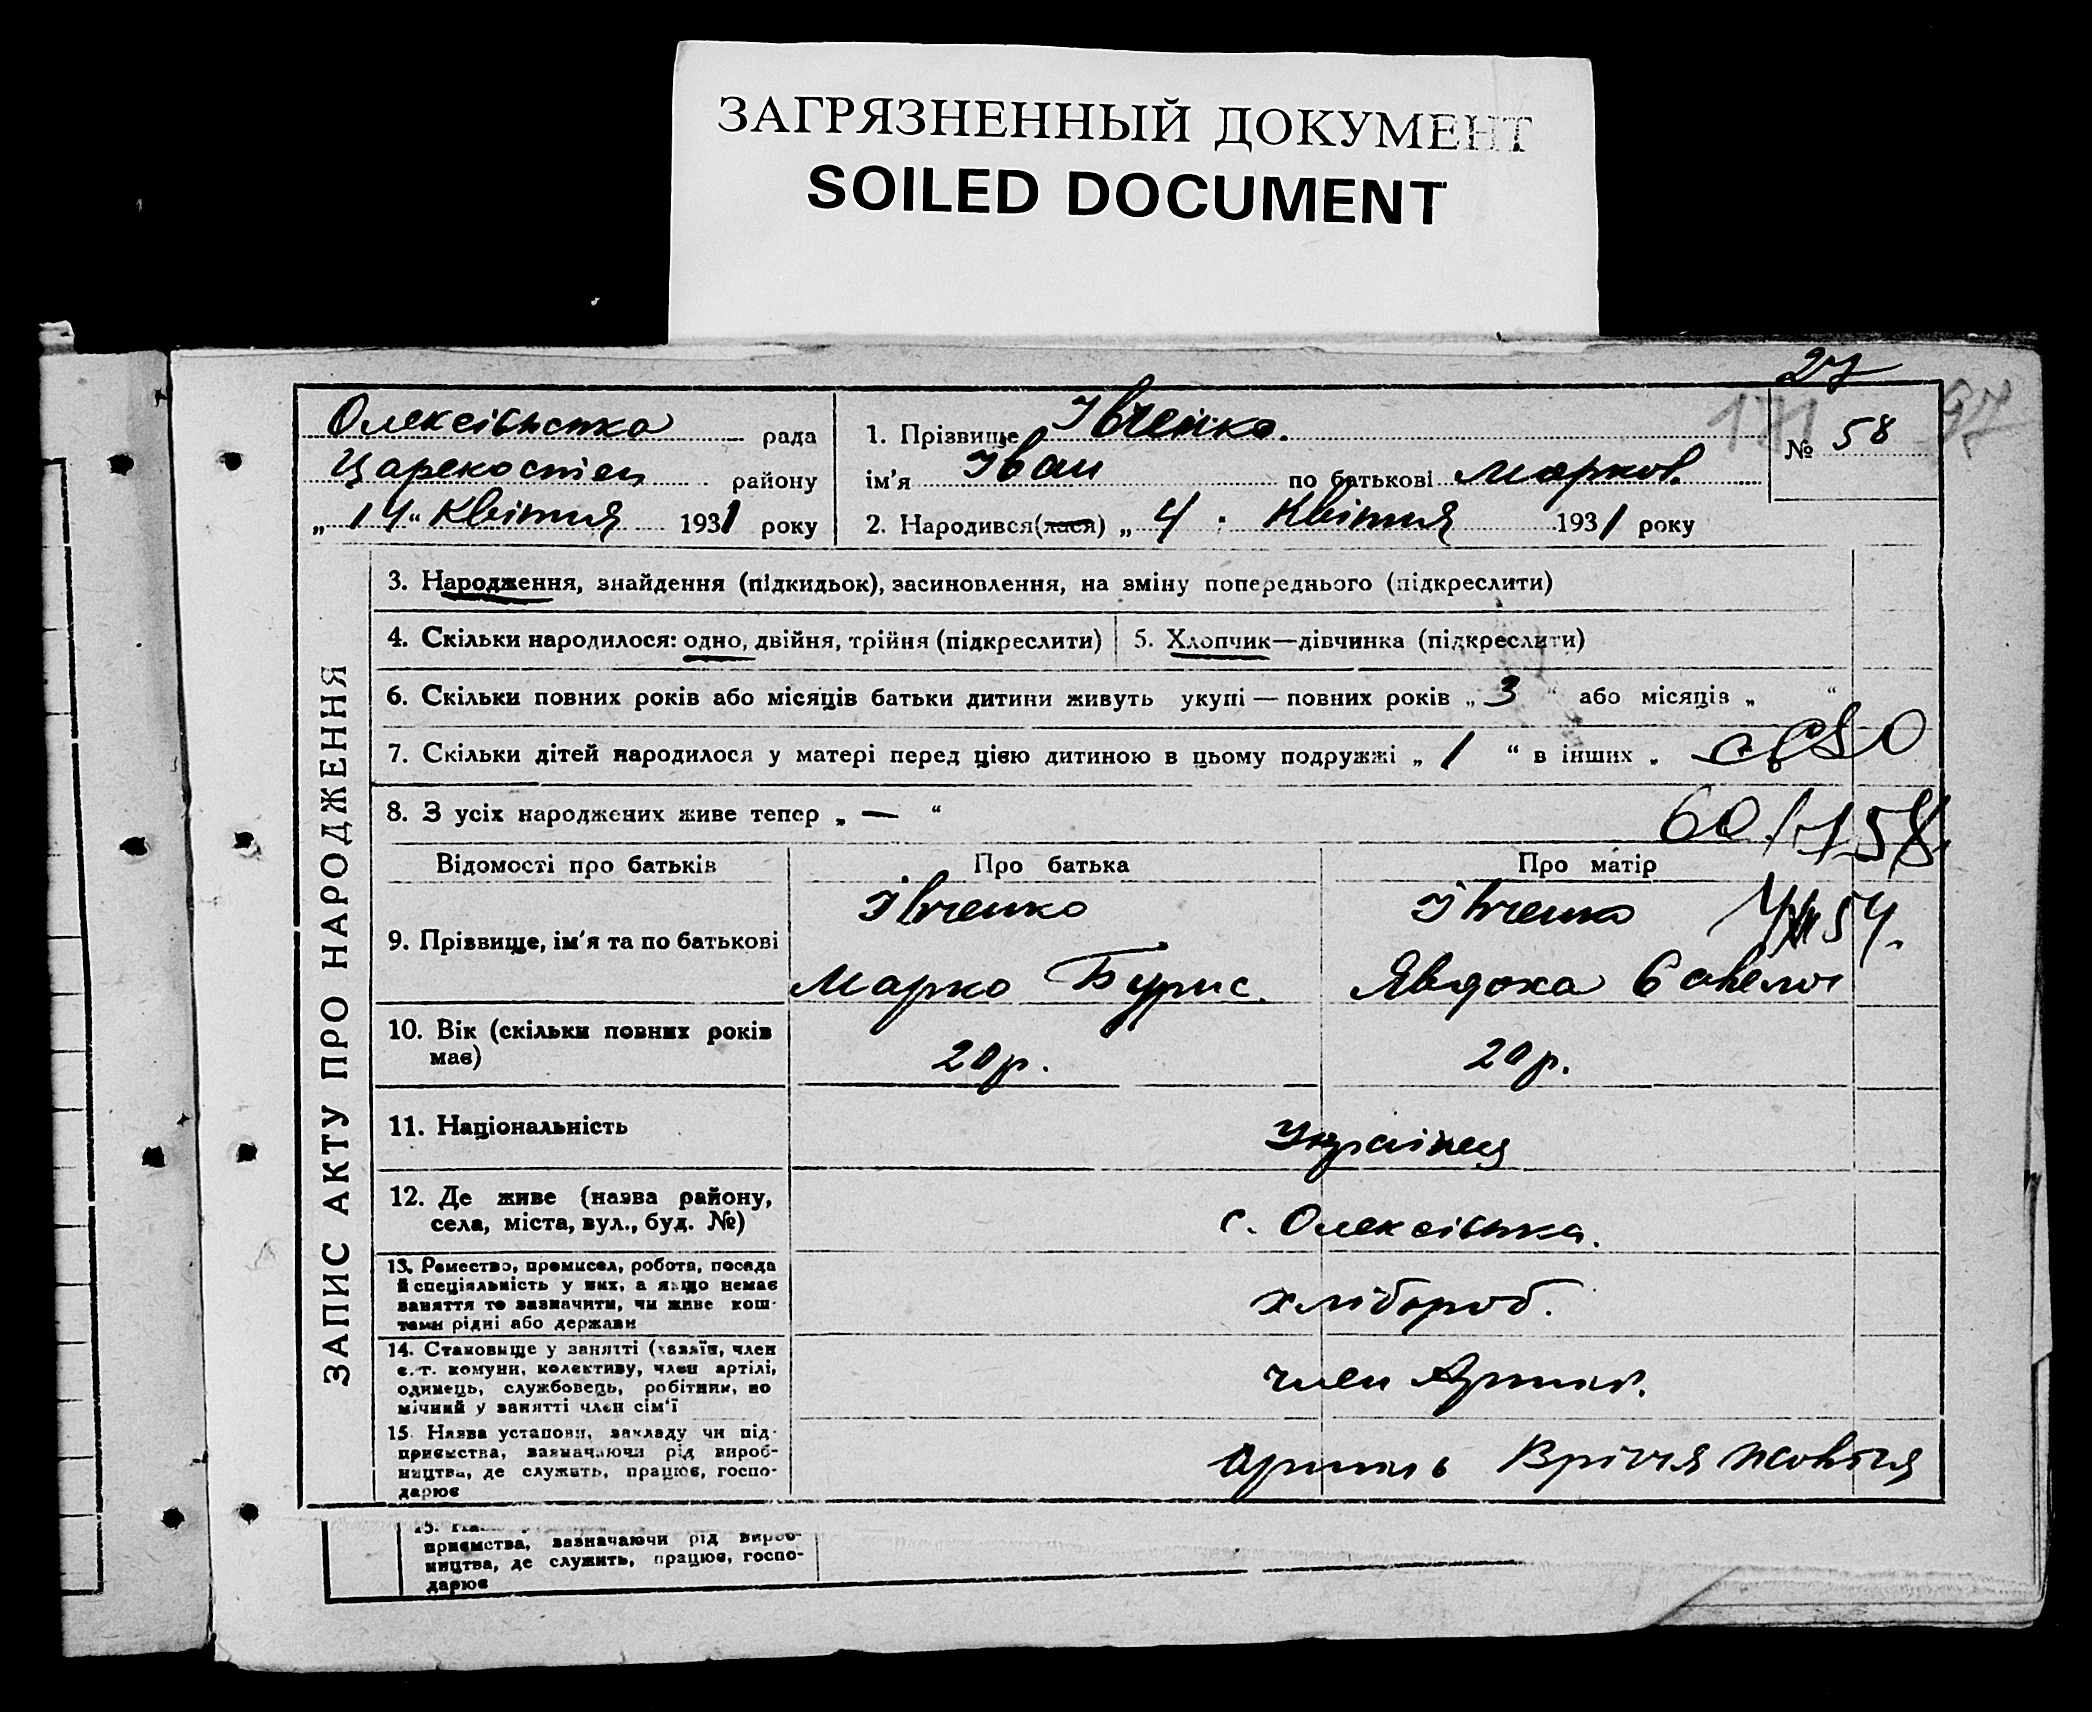 ЗАГРЯЗНЕННЫЙ ДОКУМЕНТ
SOILED DOCUMENT
27
171
97
Олексіївська рада
Царекостян району
„14“ Квітня 1931 року
1. Прізвище Івченко.
ім'я Іван по батькові Марков.
2. Народився(лася) „4. Квітня 1931 року
№ 58
ЗАПИС АКТУ ПРО НАРОДЖЕННЯ
3. Народження, знайдення (підкидьок), засиновлення, на зміну попереднього (підкреслити)
4. Скільки народилося: одно, двійня, трійня (підкреслити)
5. Хлопчик—дівчинка (підкреслити)
6. Скільки повних років або місяців батьки дитини живуть укупі — повних років „3“ або місяців „ “
7. Скільки дітей народилося у матері перед цією дитиною в цьому подружжі „1“ в інших „
8. З усіх народжених живе тепер „—“
Відомості про батьків
Про батька
Про матір
9. Прізвище, ім'я та по батькові
Івченко
Марко Бурис.
Івченко
Явдоха
54.
10. Вік (скільки повних років
має)
20р.
20р.
11. Національність
Українец
12. Де живе (назва району,
села, міста, вул., буд. №)
с. Олексіівка.
13. Ремество, промисел, робота, посада
й спеціяльність у них, а якщо немає
заняття то зазначити, чи живе кош-
тами рідні або держави
хлібороб.
14. Становище у занятті (хазяїн, член
с.-г. комуни, колективу, член артілі,
одинець, службовець, робітник, по
мічний у занятті член сім'ї
член Артил.
15. Назва установи, закладу чи під-
приємства, зазначаючи рід вироб-
ництва, де служить, працює, госпо-
дарює
Артиль Вріччя Жовтня
приємства, зазначаючи рід вироб-
ництва, де служить, працює, госпо-
дарює